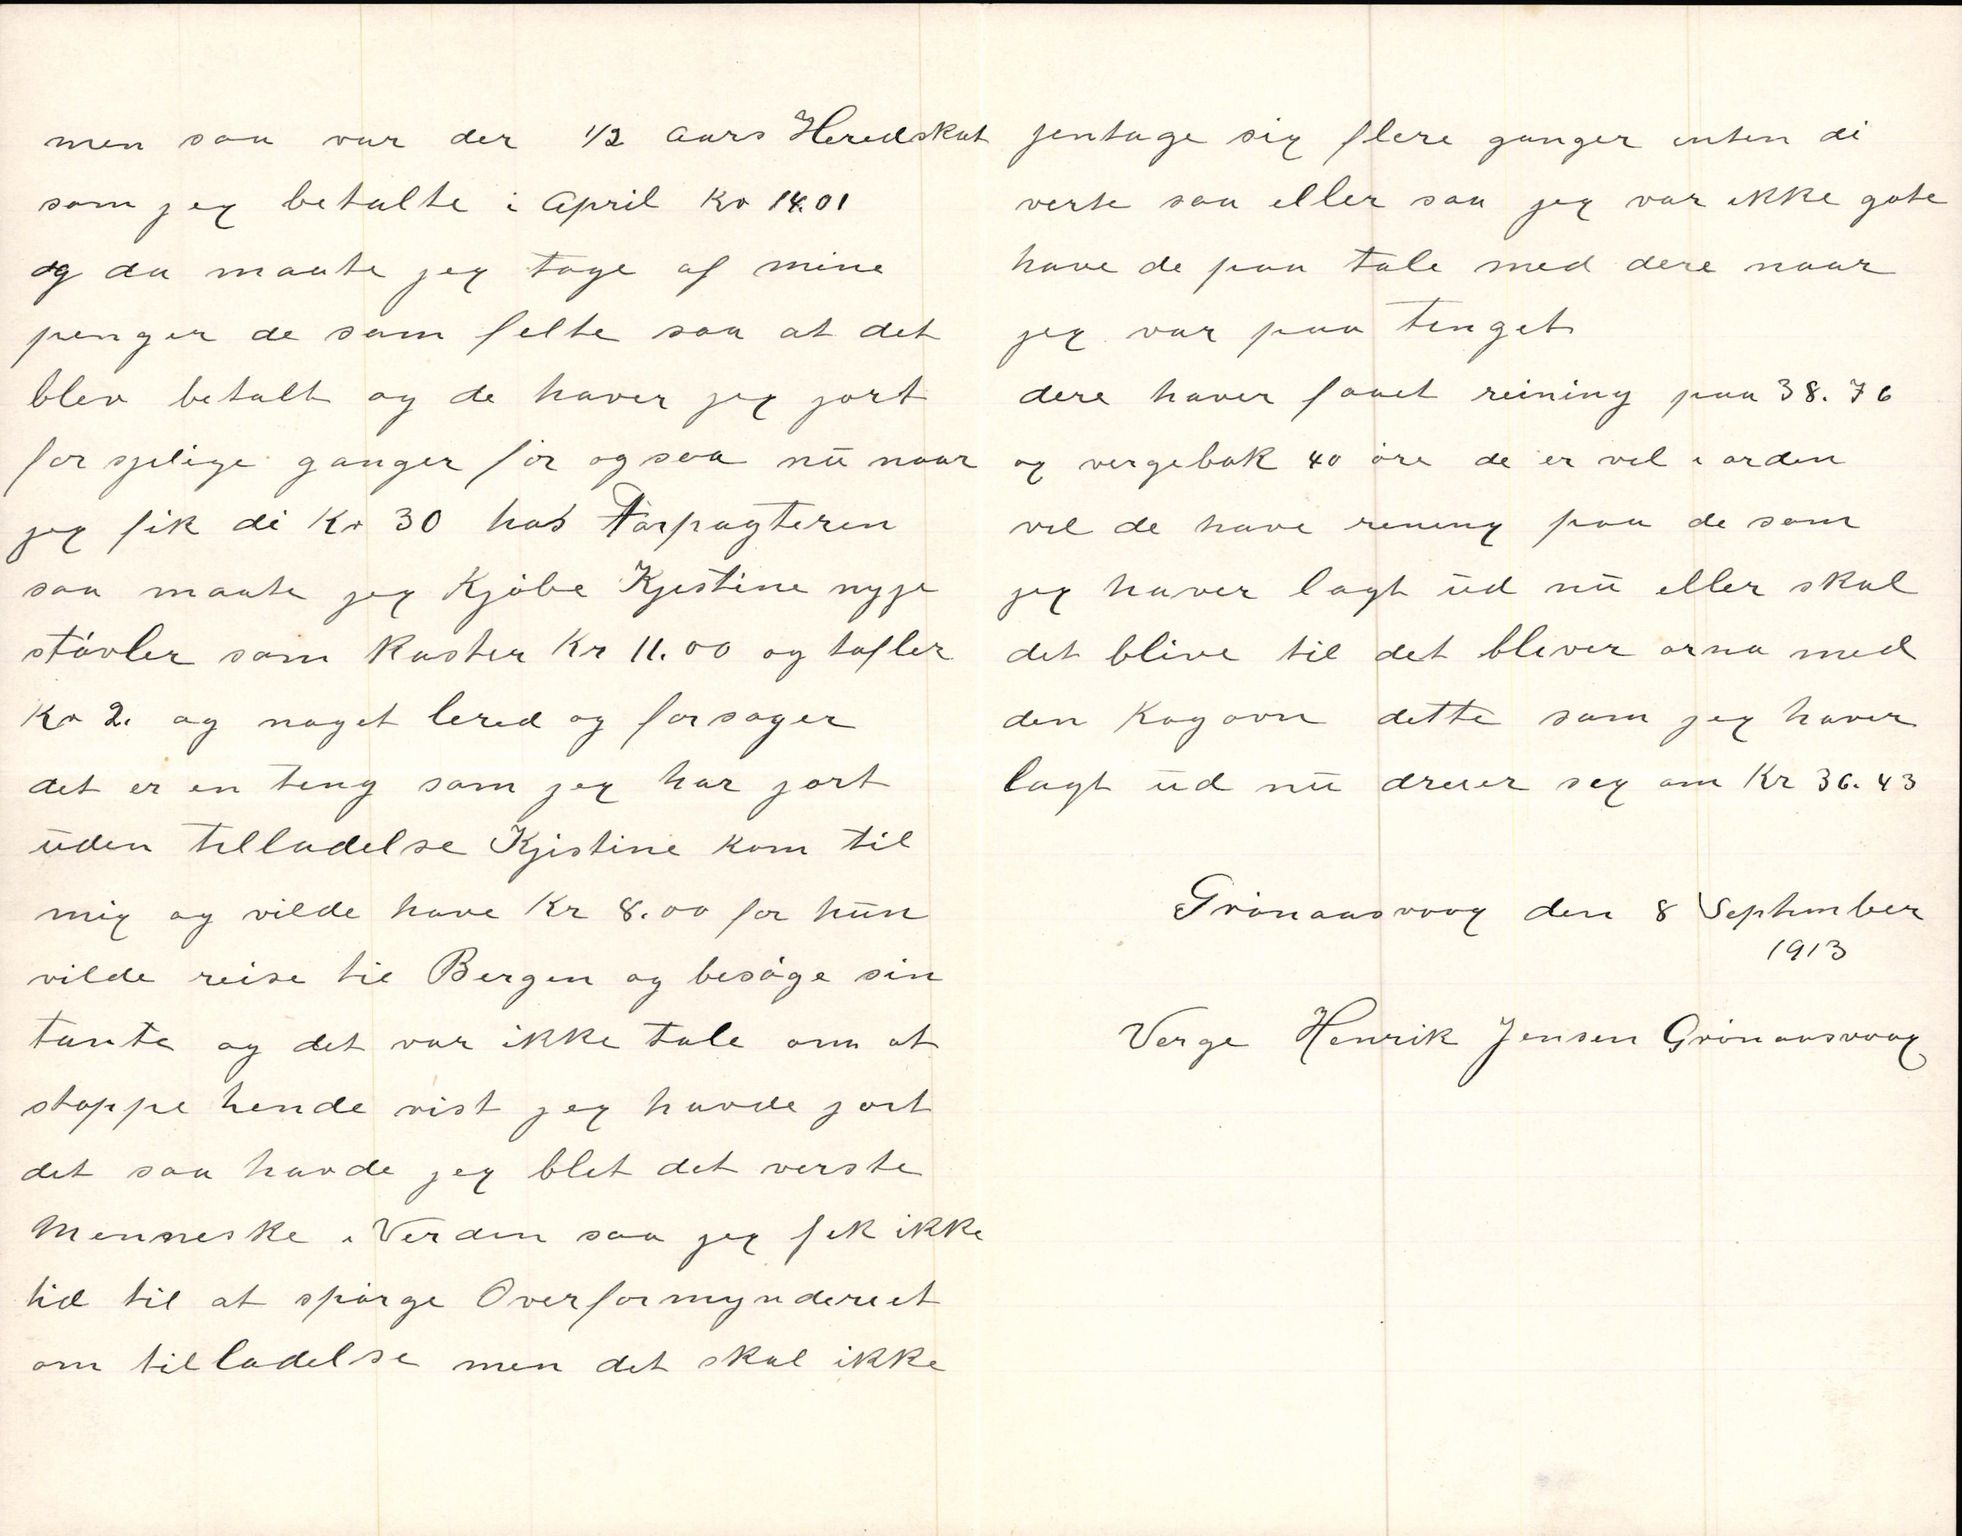 men saa var der 1/2 aars Heredskat
som jeg betalte i April Kr 14.01
og da maate jeg tage af mine
penger de som felte saa at det
blev betalt og de haver jeg jort
forsjelige ganger för ogsaa nū naar
jeg fik di Kr 30 hos Forpagteren
saa maate jeg Kjöbe Kjestine nyje
stövler som Koster Kr 11.00 og tofler
Kr 2. og noget lered og forsoger
det er en teng som jeg har jort
ūden telladelse Kjistine kom til
mig og vilde have Kr 8.00 for hūn
vilde reise til Bergen og besöge sin
tante og det var ikke tale om at
stoppe hende vist jeg havde jort
det saa havde jeg blet det verste
Menneske i Verden saa jeg fek ikke
tid til at spörge Overformynderiet
om tilladelse men det skal ikke
jentage sig flere ganger enten di
verte saa eller saa jeg var ikke gate
have de paa tale med dere naar
jeg var paa tenget
dere haver faaet reining paa 38.76
og vergebok 40 öre de er vel i orden
vel de have rening paa de som
jeg haver lagt ūd nū eller skal
det blive til det blever orna med
den Kogovn dette som jeg haver
lagt ūd nū dreier seg om Kr 36.43
Grönaasvaag den 8 September
1913
Verge Henrik Jensen Grönaasvaag